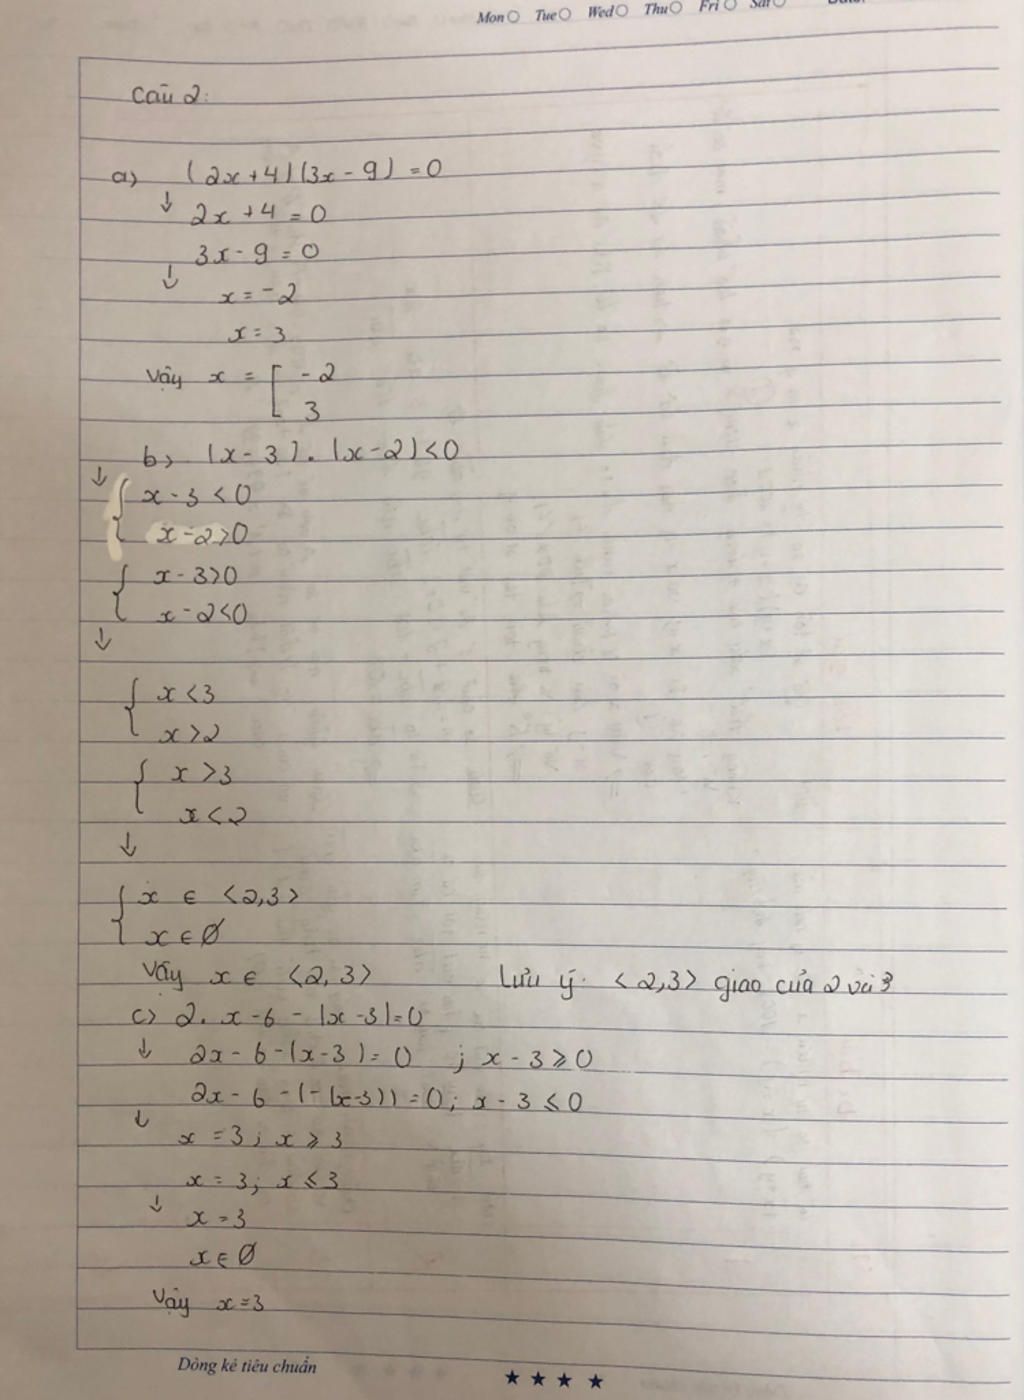 Mon Tue Wed Thu Fri Sat
Câu 2:
a) (2x+4)(3x-9)=0
↓ 2x+4=0
3x-9=0
↓ x=-2
x=3
Vậy x = [ -2
3
b) (x-3).(x-2)<0
↓ { x-3<0
x-2>0
{ x-3>0
x-2<0
↓
{ x<3
x>2
{ x>3
x<2
↓
{ x ∈ <2,3>
x ∈ Ø
Vậy x ∈ <2,3> Lưu ý: <2,3> giao của 2 và 3
c) 2.x-6-|x-3|=0
↓ 2x-6-(x-3)=0 ; x-3⩾0
2x-6-(-(x-3))=0; x-3≤0
↓ x=3; x⩾3
x=3; x≤3
↓ x=3
x∈Ø
Vậy x=3
Dòng kẻ tiêu chuẩn ★ ★ ★ ★